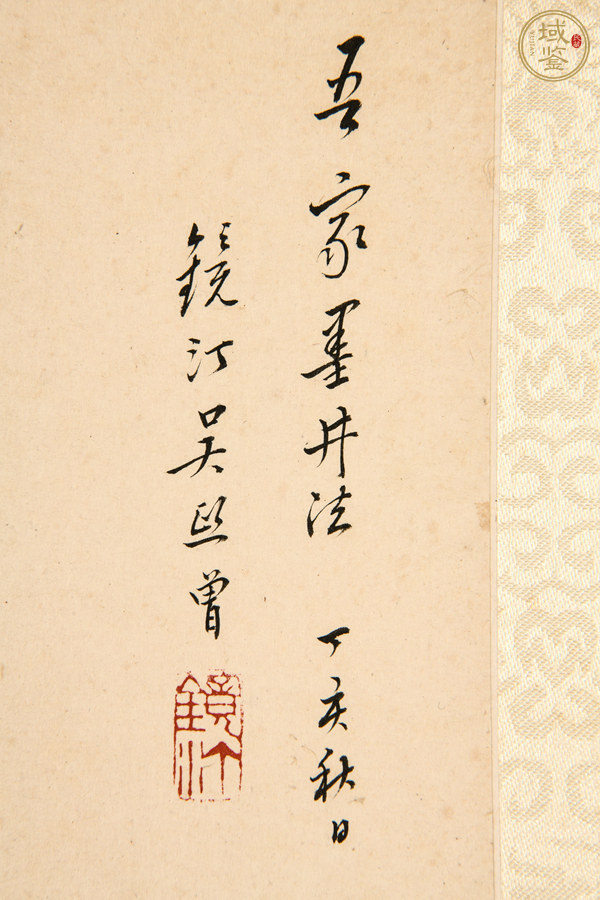 吾家墨井法 丁亥秋日
鏡汀吴熙曾
鏡汀
域鉴
YUJIAN